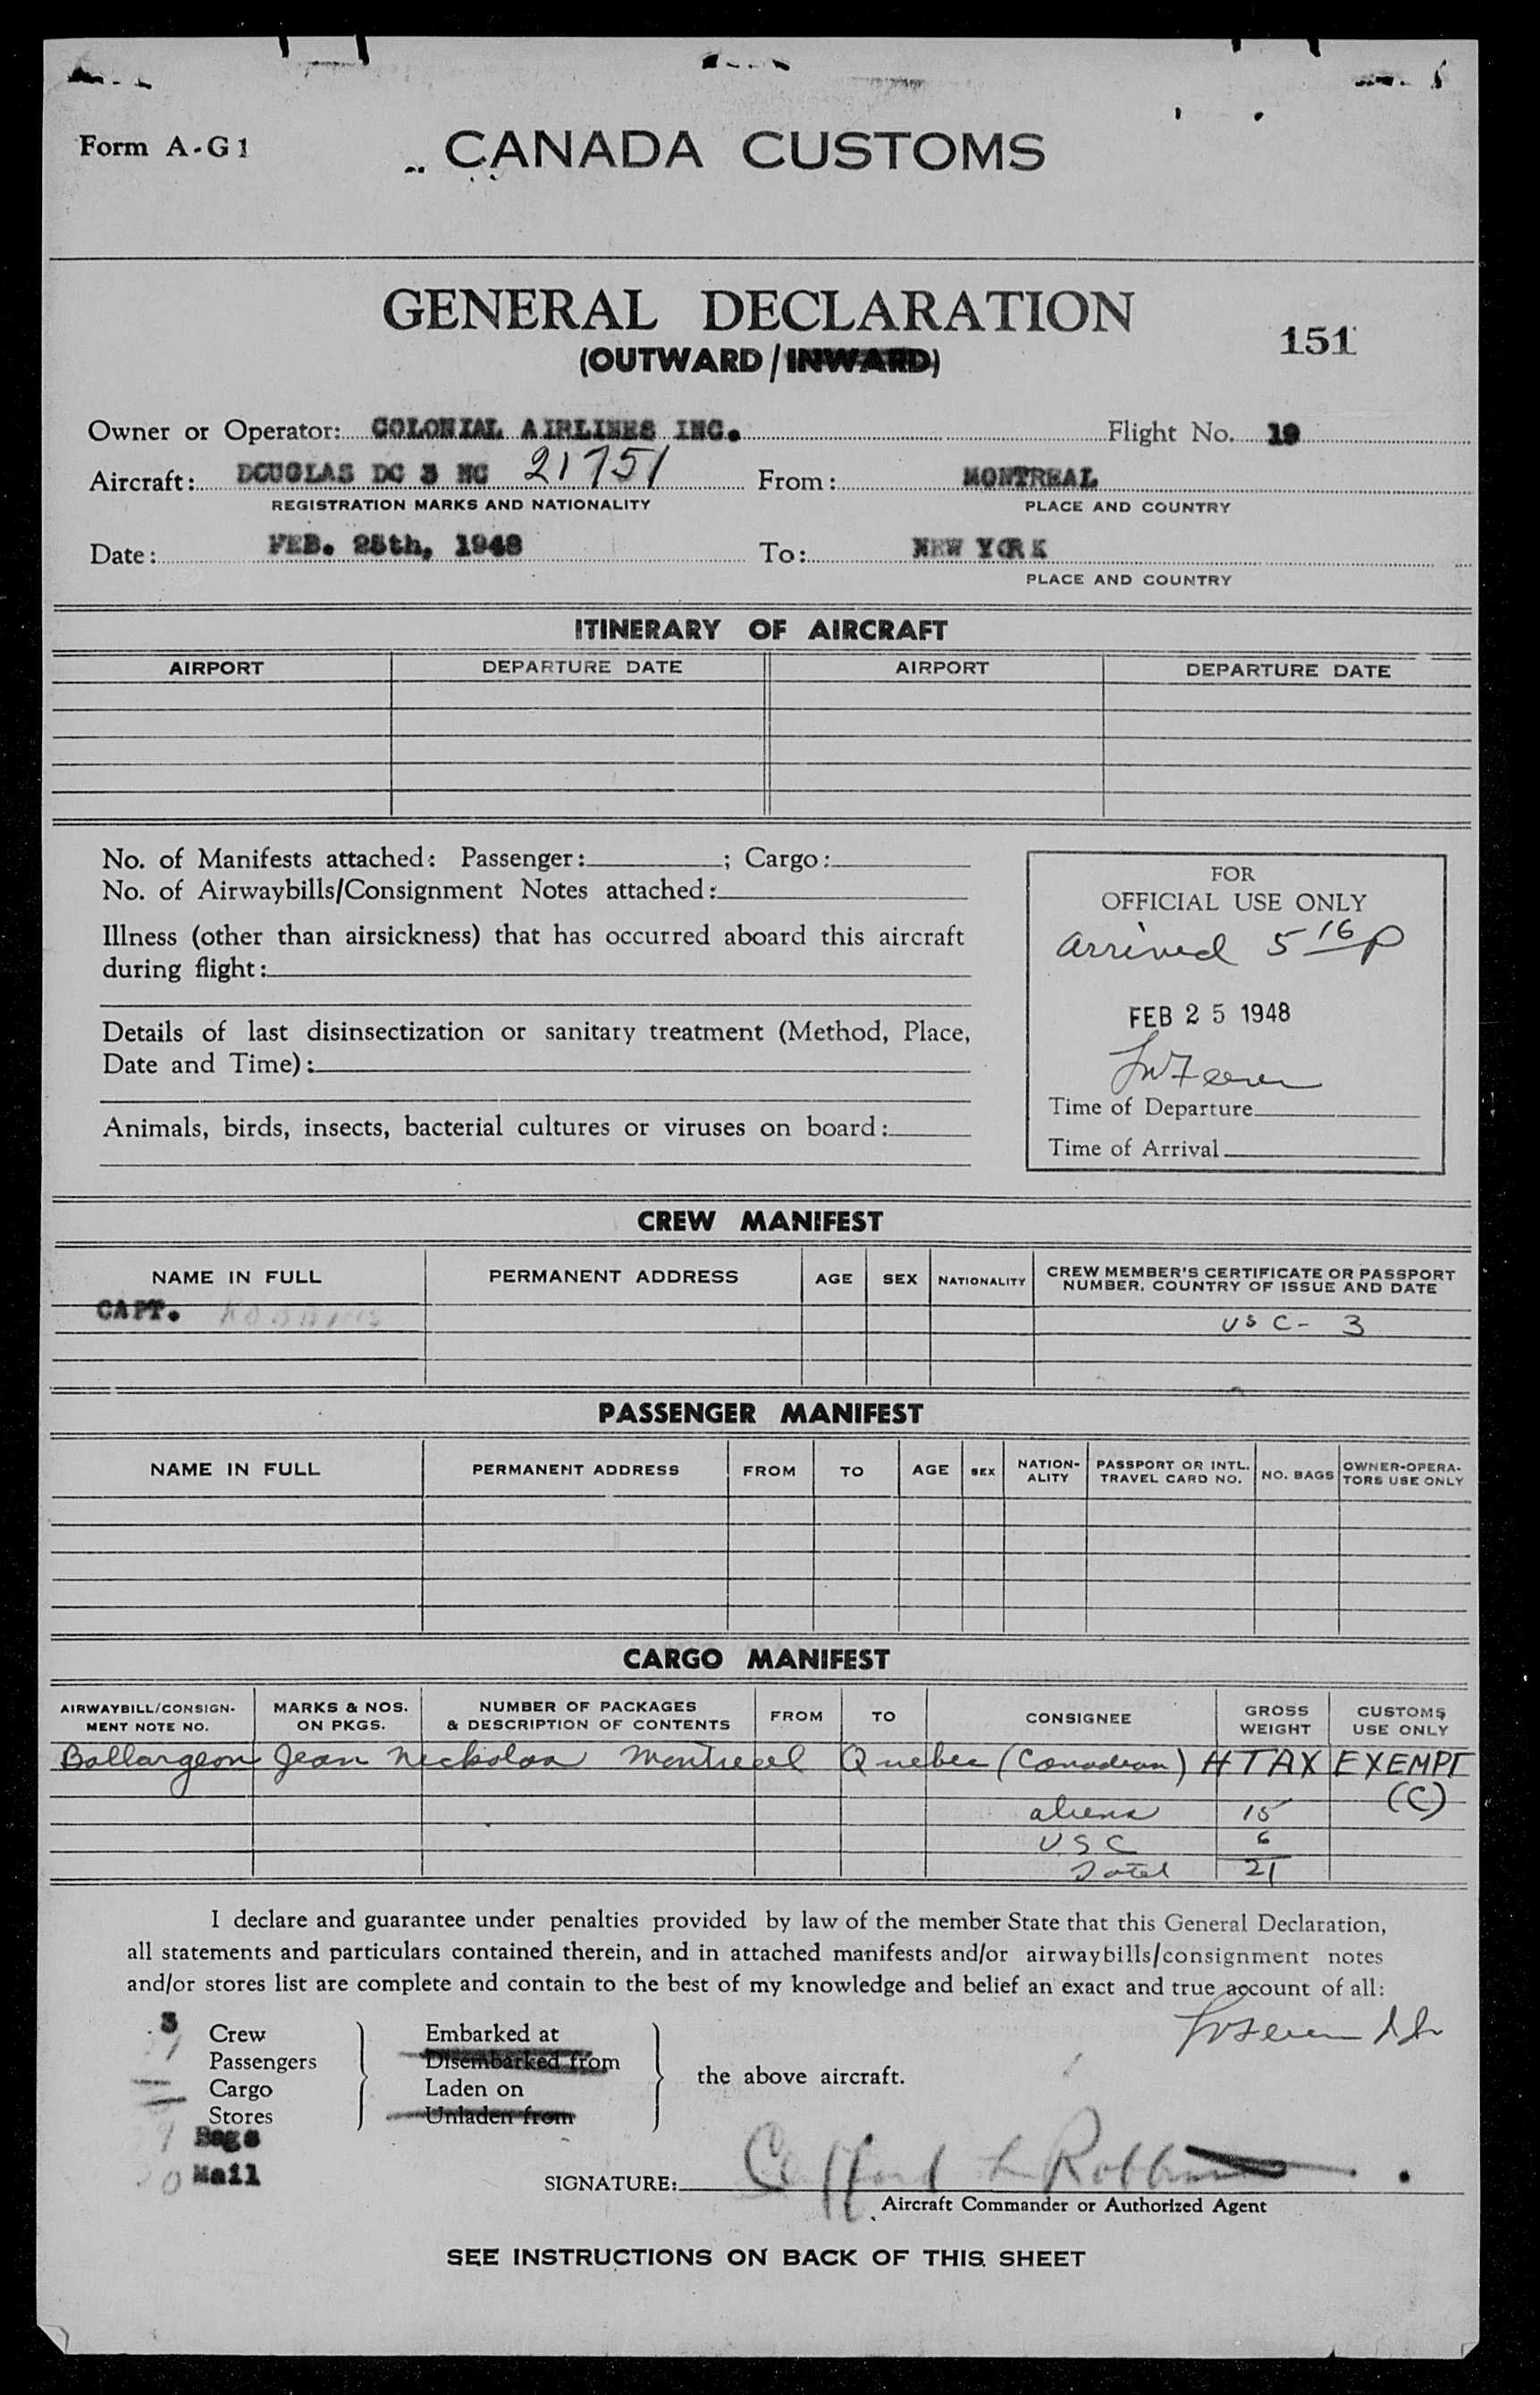 Form A-G1
CANADA CUSTOMS
GENERAL DECLARATION
(OUTWARD/INWARD)
151
Owner or Operator: COLONIAL AIRLINES INC. Flight No. 19
Aircraft: DOUGLAS DC 3 NC 21751 From: MONTREAL
REGISTRATION MARKS AND NATIONALITY PLACE AND COUNTRY
Date: FEB. 25th, 1948 To: NEW YORK
PLACE AND COUNTRY
ITINERARY OF AIRCRAFT
AIRPORT DEPARTURE DATE AIRPORT DEPARTURE DATE
No. of Manifests attached: Passenger: ; Cargo:
No. of Airwaybills/Consignment Notes attached:
Illness (other than airsickness) that has occurred aboard this aircraft
during flight:
Details of last disinsectization or sanitary treatment (Method, Place,
Date and Time):
Animals, birds, insects, bacterial cultures or viruses on board:
FOR
OFFICIAL USE ONLY
arrived 5 16 P
FEB 25 1948
Time of Departure
Time of Arrival
CREW MANIFEST
NAME IN FULL PERMANENT ADDRESS AGE SEX NATIONALITY CREW MEMBER'S CERTIFICATE OR PASSPORT NUMBER, COUNTRY OF ISSUE AND DATE
CAPT. ROBBINS USC - 3
PASSENGER MANIFEST
NAME IN FULL PERMANENT ADDRESS FROM TO AGE SEX NATION-ALITY PASSPORT OR INTL. TRAVEL CARD NO. NO. BAGS OWNER-OPERA-TORS USE ONLY
CARGO MANIFEST
AIRWAYBILL/CONSIGN-MENT NOTE NO. MARKS & NOS. ON PKGS. NUMBER OF PACKAGES & DESCRIPTION OF CONTENTS FROM TO CONSIGNEE GROSS WEIGHT CUSTOMS USE ONLY
Ballargeon Jean Nickolas Montreal Quebec (Canadian) H TAX EXEMPT
(C)
aliens 15
USC 6
Total 21
I declare and guarantee under penalties provided by law of the member State that this General Declaration,
all statements and particulars contained therein, and in attached manifests and/or airwaybills/consignment notes
and/or stores list are complete and contain to the best of my knowledge and belief an exact and true account of all:
3 Crew Embarked at
Passengers Disembarked from
the above aircraft.
Cargo Laden on
Stores Unladen from
Bags
Mail
SIGNATURE: Clifford L Robbins
Aircraft Commander or Authorized Agent
SEE INSTRUCTIONS ON BACK OF THIS SHEET